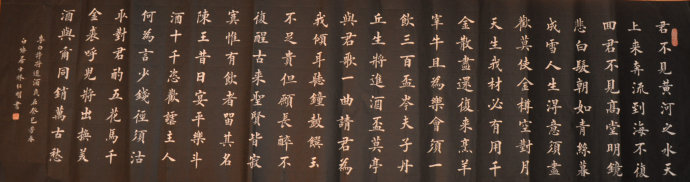 君不見黃河之水天
上來奔流到海不復
回君不見高堂明鏡
悲白髮朝如青絲暮
成雪人生得意須盡
歡莫使金樽空對月
天生我材必有用千
金散盡還復來烹羊
宰牛且為樂會須一
飲三百盃岑夫子丹
丘生將進酒盃莫停
與君歌一曲請君為
我傾耳聽鐘鼓饌玉
不足貴但願長醉不
復醒古來聖賢皆寂
寞惟有飲者留其名
陳王昔日宴平樂斗
酒十千恣歡謔主人
何為言少錢徑須沽
取對君酌五花馬千
金裘呼兒將出換美
酒與爾同銷萬古愁
李白將進酒癸巳春
居士林仁書